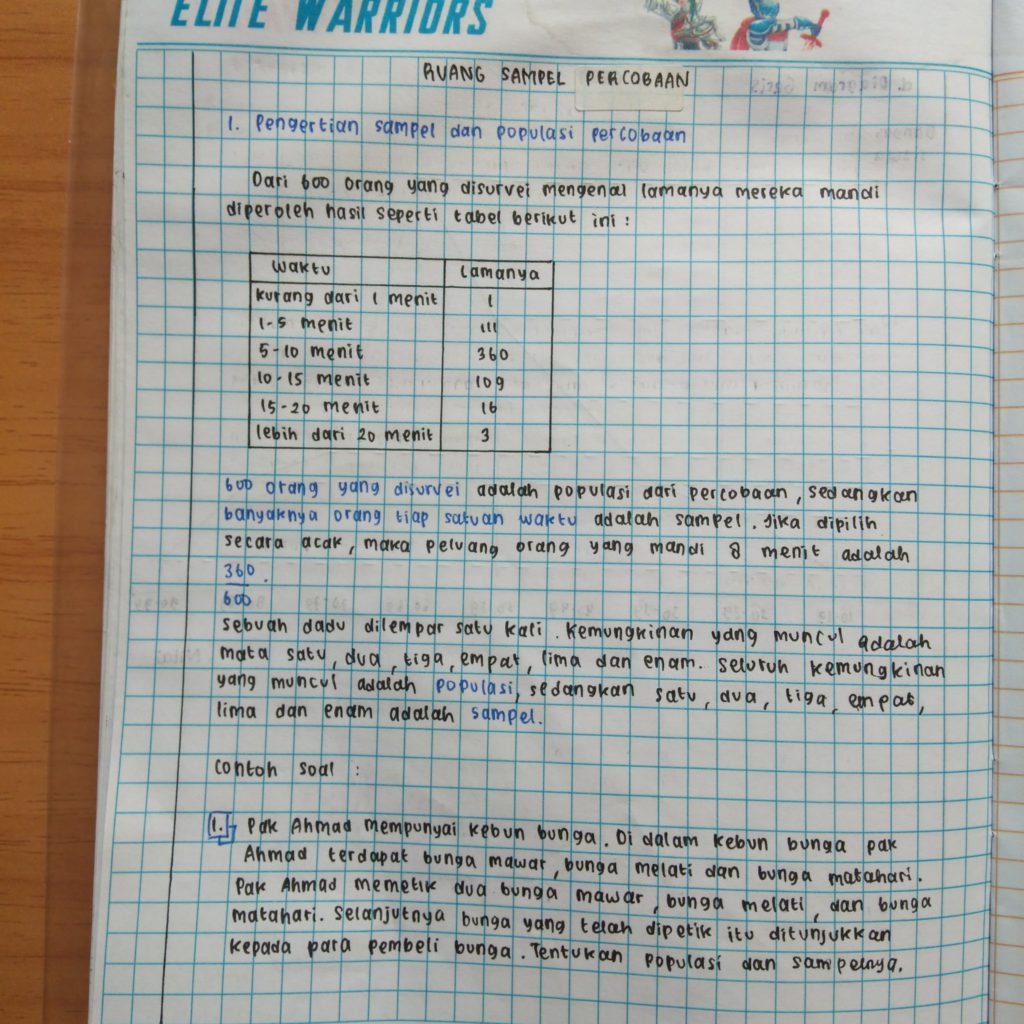 ELITE WARRIORS
RUANG SAMPEL PERCOBAAN
1. Pengertian sampel dan populasi percobaan
Dari 600 orang yang disurvei mengenal lamanya mereka mandi
diperoleh hasil seperti tabel berikut ini :
Waktu Lamanya
kurang dari 1 menit 1
1-5 menit 111
5-10 menit 360
10-15 menit 109
15-20 menit 16
lebih dari 20 menit 3
600 orang yang disurvei adalah populasi dari percobaan, sedangkan
banyaknya orang tiap satuan waktu adalah sampel. Jika dipilih
secara acak, maka peluang orang yang mandi 8 menit adalah
360.
600
Sebuah dadu dilempar satu kali. Kemungkinan yang muncul adalah
mata satu, dua, tiga, empat, lima dan enam. Seluruh kemungkinan
yang muncul adalah populasi, sedangkan satu, dua, tiga, empat,
lima dan enam adalah sampel.
Contoh soal :
1. Pak Ahmad mempunyai kebun bunga. Di dalam kebun bunga pak
Ahmad terdapat bunga mawar, bunga melati dan bunga matahari.
Pak Ahmad memetik dua bunga mawar, bunga melati, dan bunga
matahari. Selanjutnya bunga yang telah dipetik itu ditunjukkan
kepada para pembeli bunga. Tentukan populasi dan sampelnya.